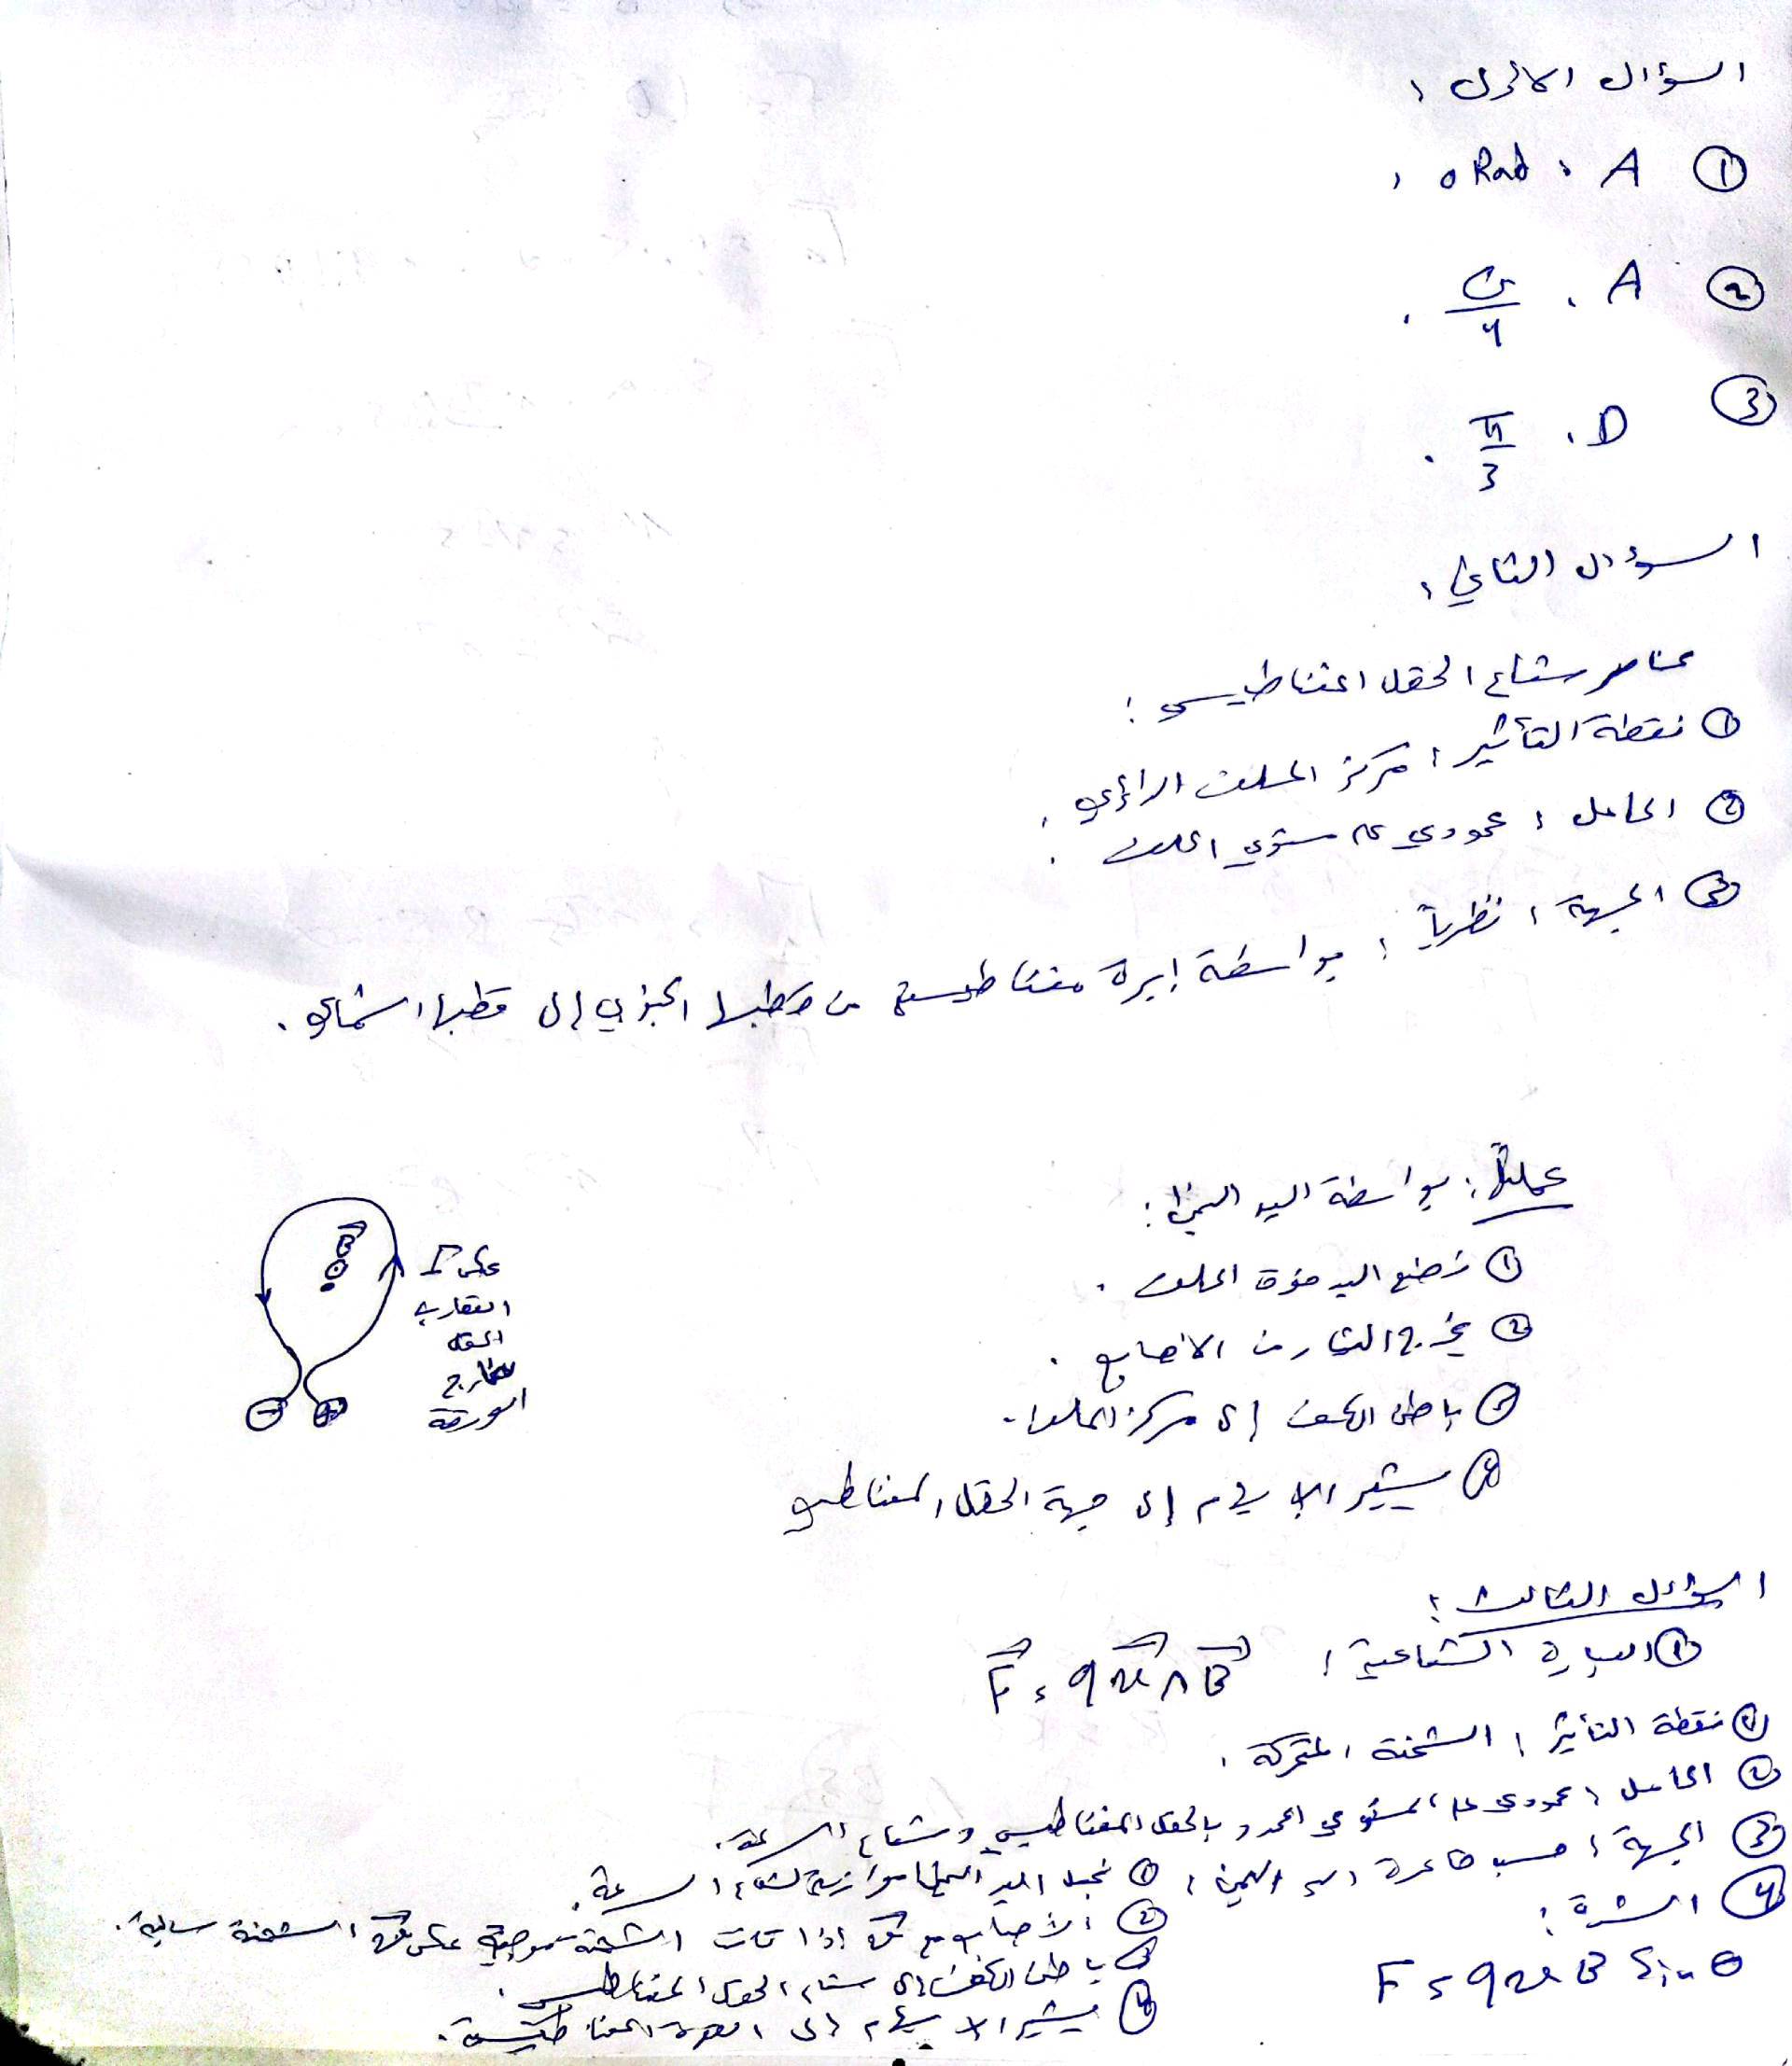 السؤال الأول :
① A . 0 Rad .
② A .
③ D . π/3 .
السؤال الثاني :
عناصر شعاع الحقل المغناطيسي :
① نقطة التأثير : مركز الملف الدائري .
② الحامل : عمودي على مستوي الملف .
③ الجهة : نظرياً : بواسطة إبرة مغناطيسية من قطبها الجنوبي إلى قطبها الشمالي .
عملياً : بواسطة اليد اليمنى :
① نضع اليد فوق الملف .
② يخرج التيار من الأصابع .
③ باطن الكف إلى مركز الملف .
④ يشير الإبهام إلى جهة الحقل المغناطيسي
B
I عكس
العقارب
الحقل
خارج
الورقة
− +
السؤال الثالث :
① العبارة الشعاعية : F = q v ∧ B
① نقطة التأثير : الشحنة المتحركة .
② الحامل : عمودي على المستوي المحدد بالحقل المغناطيسي وشعاع السرعة .
③ الجهة : حسب قاعدة اليد اليمنى : ① نجعل اليد اليمنى موازية لشعاع السرعة .
② الأصابع مع إذا كانت الشحنة موجبة عكس الشحنة سالبة .
③ باطن الكف إلى شعاع الحقل المغناطيسي .
④ يشير الإبهام إلى القوة المغناطيسية .
④ الشدة :
F = q v B sin θ